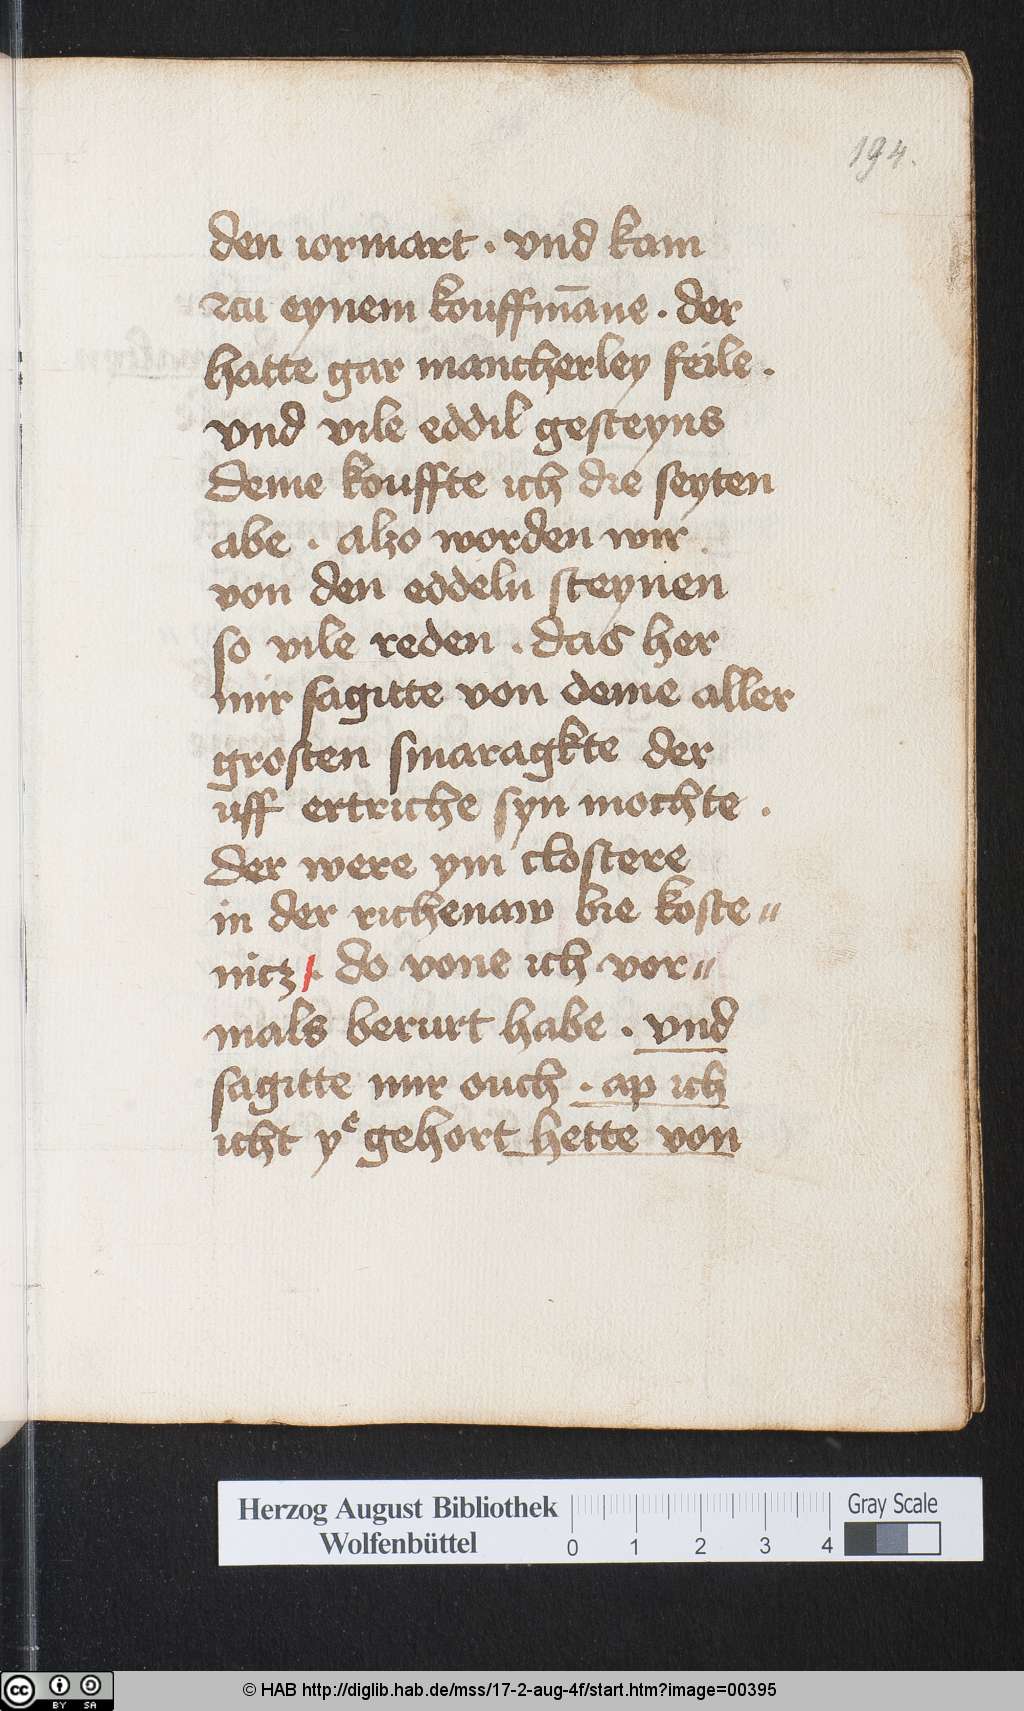 194.
den iormart . vnd kam
zcu eynem kouffmāne . der
hatte gar mancherley feile .
vnd vile eddil gesteyns
deme kouffte ich die seyten
abe . alzo worden wir
von den eddeln steynen
so vile reden . das her
mir sagitte von deme aller
grosten smaragkte der
uff ertriche syn mochte .
der were ym clostere
in der richenaw bie koste〃
nicz/. do vone ich vor〃
mals berurt habe . vnd
sagitte mir ouch . ap ich
icht yͤ gehort hette von
Herzog August Bibliothek
Wolfenbüttel
0 1 2 3 4
Gray Scale
cc BY SA
© HAB http://diglib.hab.de/mss/17-2-aug-4f/start.htm?image=00395